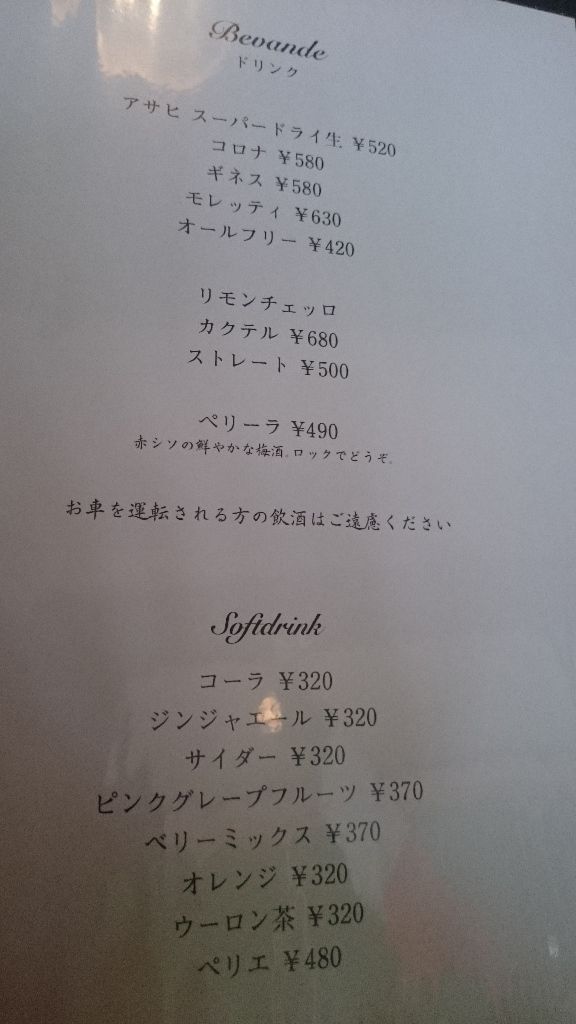 Bevande
ドリンク
アサヒ スーパードライ生 ¥520
コロナ ¥580
ギネス ¥580
モレッティ ¥630
オールフリー ¥420
リモンチェッロ
カクテル ¥680
ストレート ¥500
ペリーラ ¥490
赤シソの鮮やかな梅酒。ロックでどうぞ。
お車を運転される方の飲酒はご遠慮ください
Softdrink
コーラ ¥320
ジンジャエール ¥320
サイダー ¥320
ピンクグレープフルーツ ¥370
ベリーミックス ¥370
オレンジ ¥320
ウーロン茶 ¥320
ペリエ ¥480